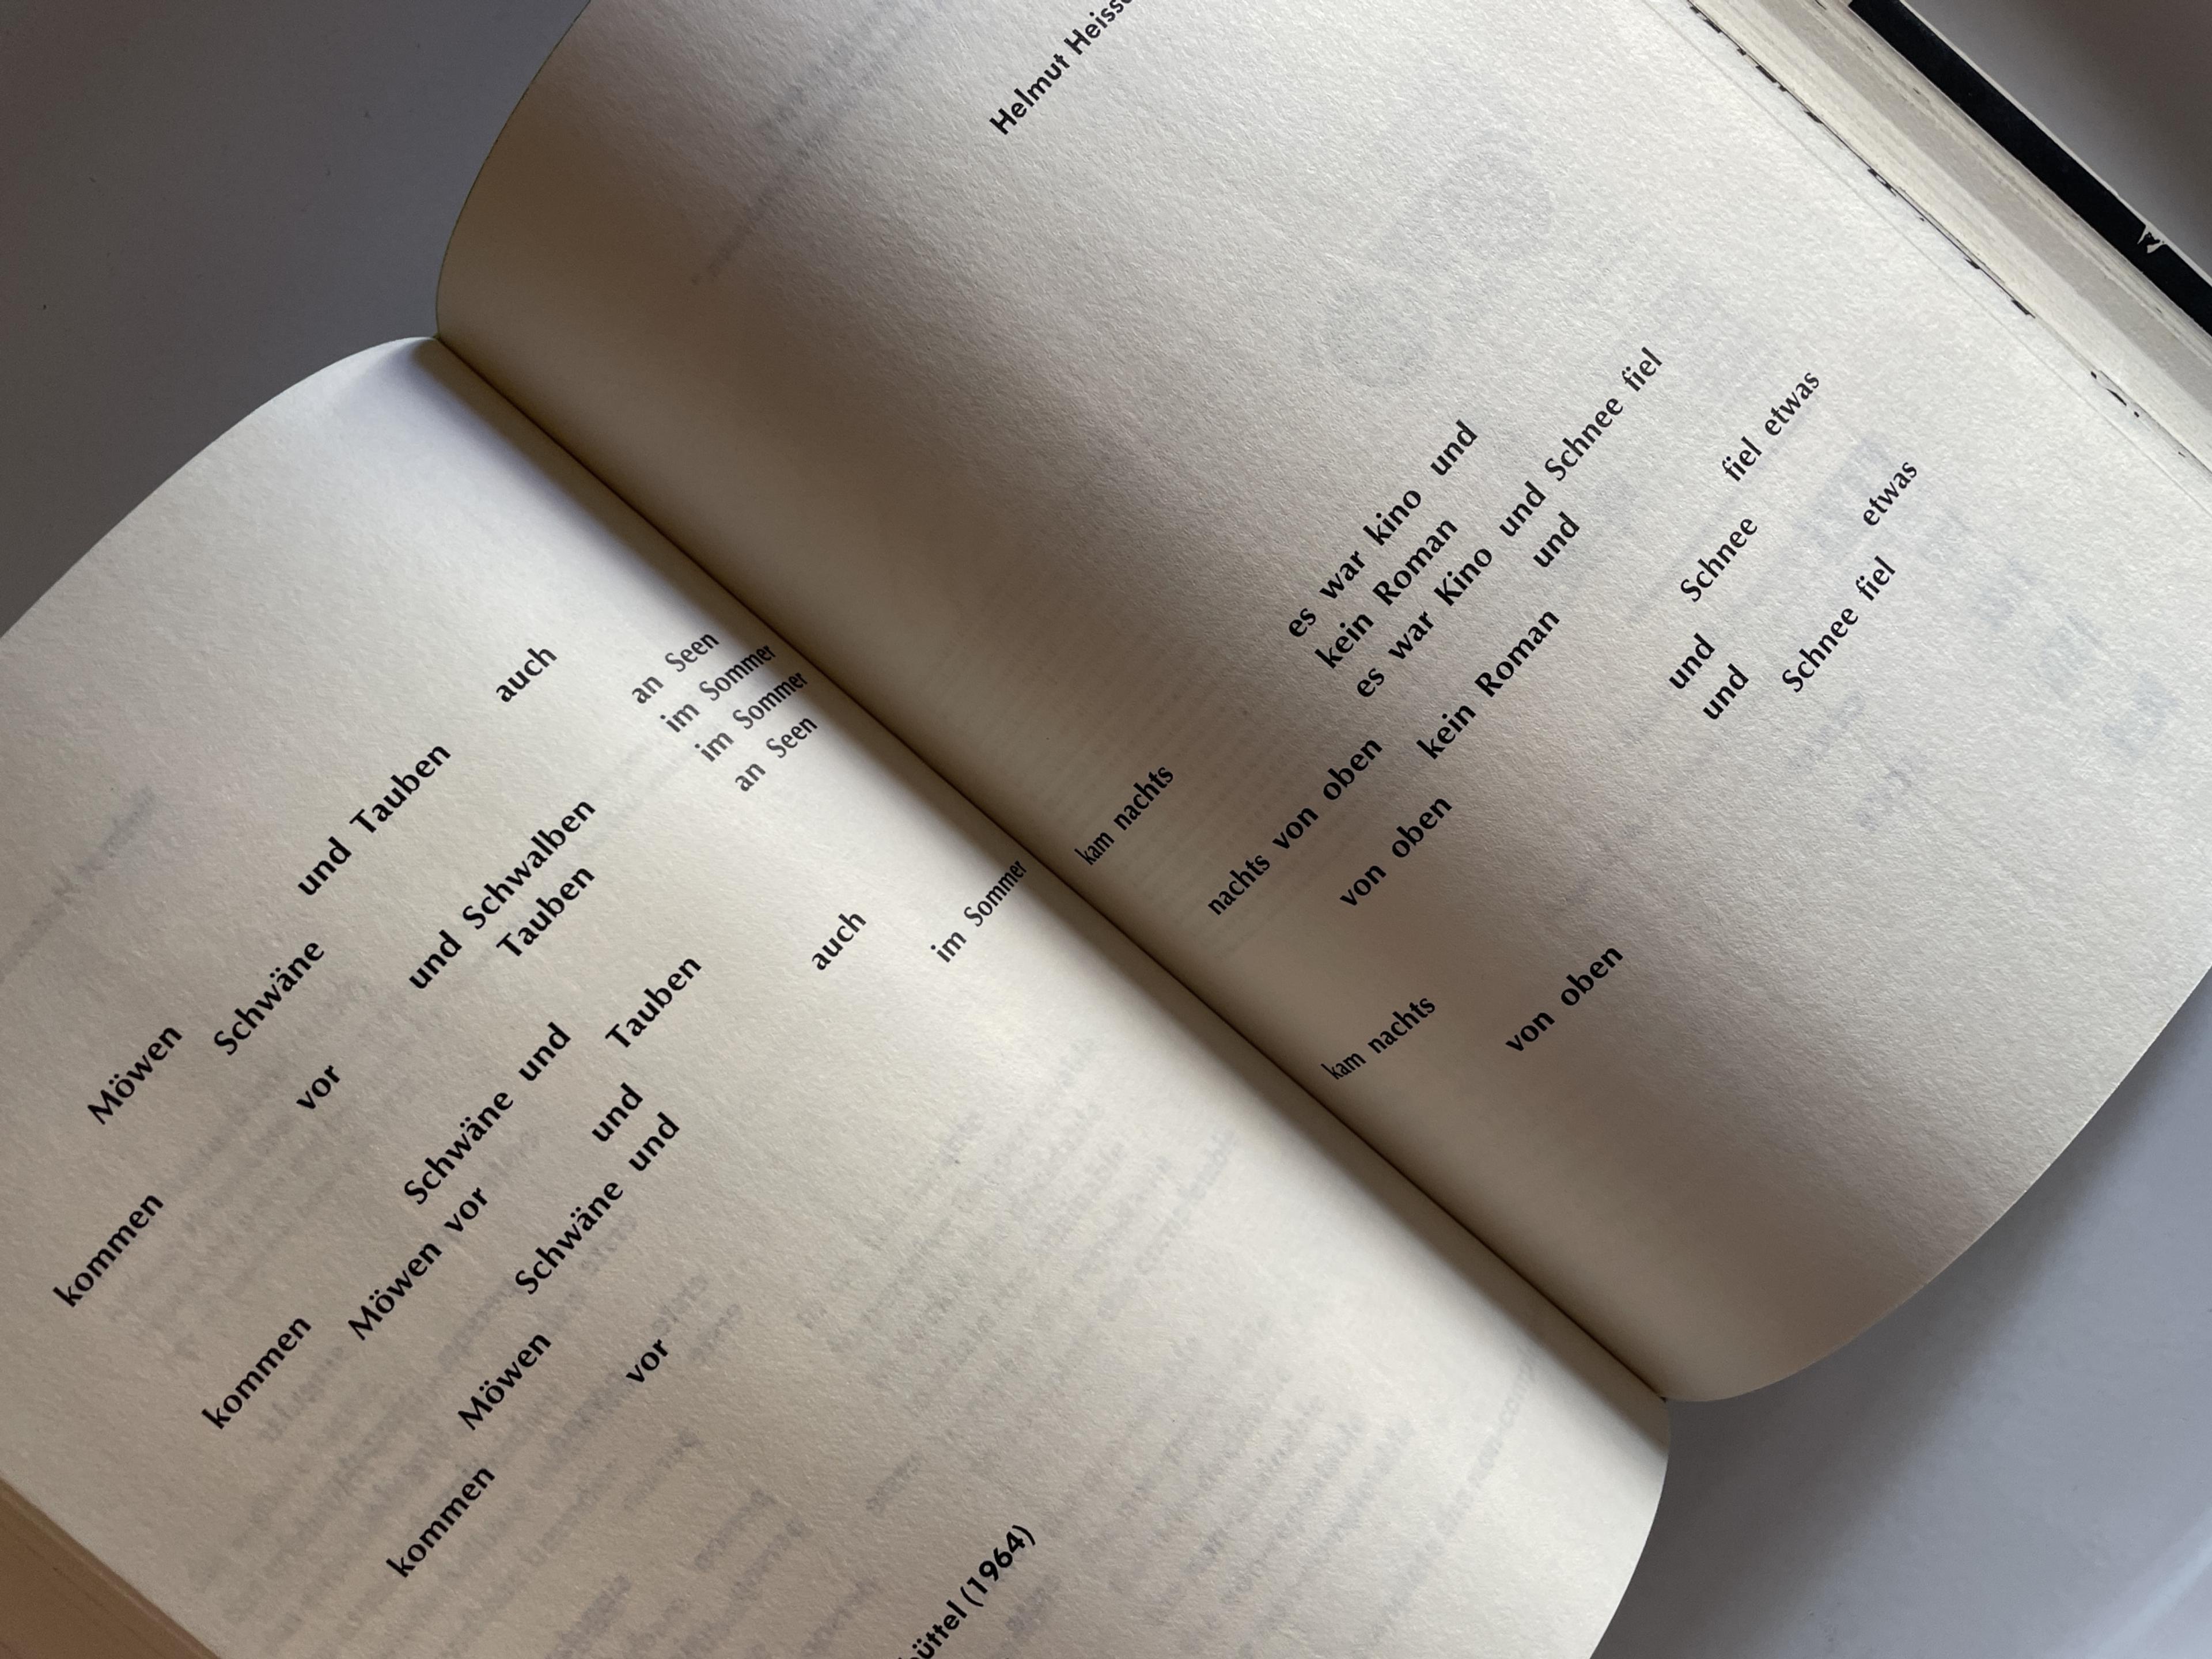 Möwen und Tauben auch
Schwäne
kommen an Seen
vor und Schwalben im Sommer
Tauben im Sommer
an Seen
kommen Schwäne und
Möwen vor Tauben
und
Schwäne und auch
Möwen im Sommer
kommen
vor
büttel (1964)
Helmut Heiss
kam nachts es war kino und
kein Roman
es war Kino und Schnee fiel
nachts von oben und
kein Roman
von oben fiel etwas
Schnee
und
kam nachts und etwas
Schnee fiel
von oben